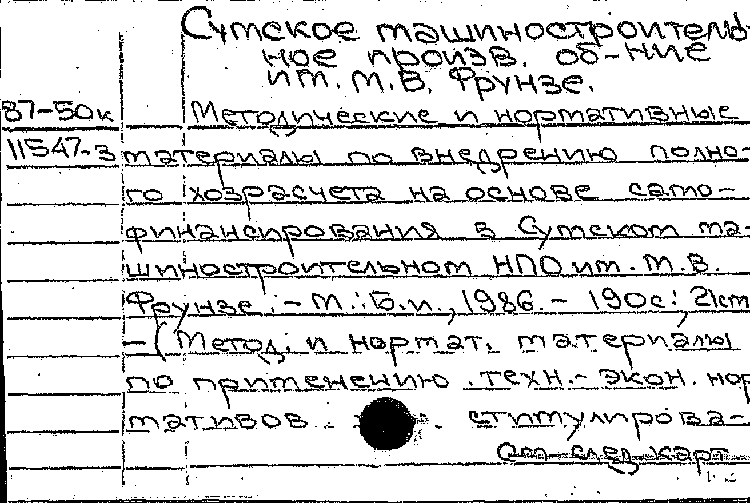 Сумское машиностроитель-
ное произв. об-ние
им. М.В. Фрунзе.
87-50к Методические и нормативные
11547-3 материалы по внедрению полно-
го хозрасчета на основе само-
финансирования в Сумском ма-
шиностроительном НПО им. М.В.
Фрунзе. - М.: Б.и., 1986. - 190с.; 21см
- (Метод. и нормат. материалы
по применению техн.-экон. нор
мативов стимулирова-
См след карт